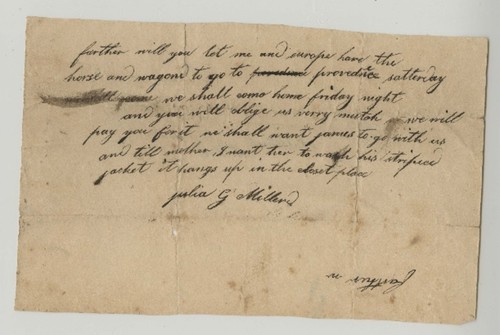 farther will you let me and europe have the
horse and wagond to go to providince satterday
we shall come home friday night
and you will oblige us verry mutch we will
pay you for it we shall want james to go with us
and till mother I want her to wash his stripeed
jacket it hangs up in the closet place
julia G Millerd
farther